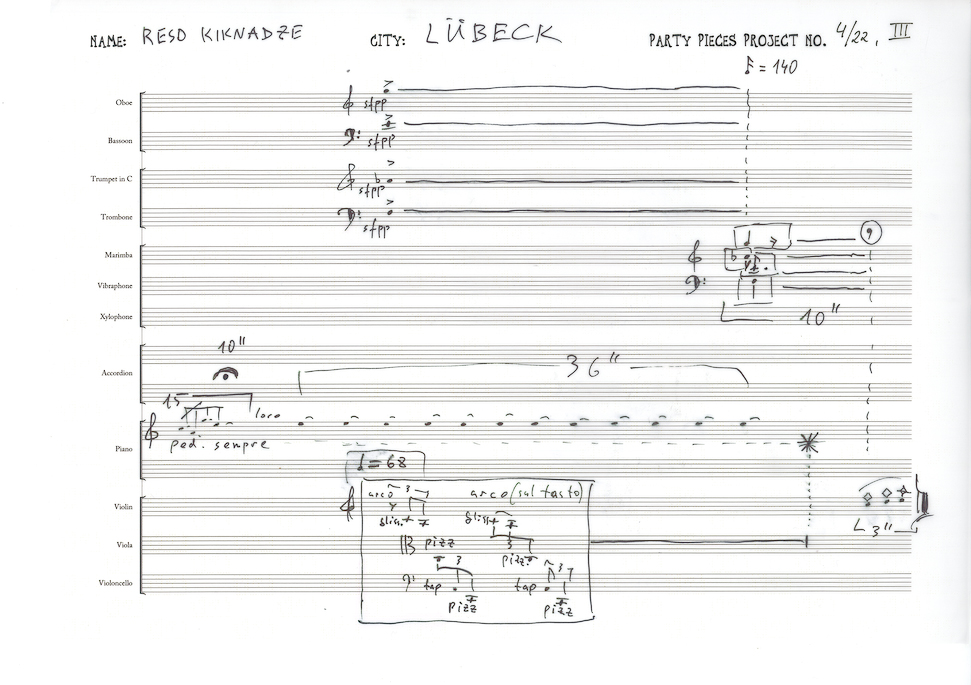 NAME: RESO KIKNADZE CITY: LÜBECK PARTY PIECES PROJECT NO. 4/22, III
= 140
Oboe sfpp
Bassoon sfpp
Trumpet in C sfpp
Trombone sfpp
Marimba
Vibraphone
Xylophone 10"
10"
Accordion 36"
15 loco
Piano ped. sempre
= 68
arco 3 arco (sul tasto)
Violin gliss. gliss.
3"
Viola pizz 3
pizz.
3 3
Violoncello tap tap
pizz pizz
9